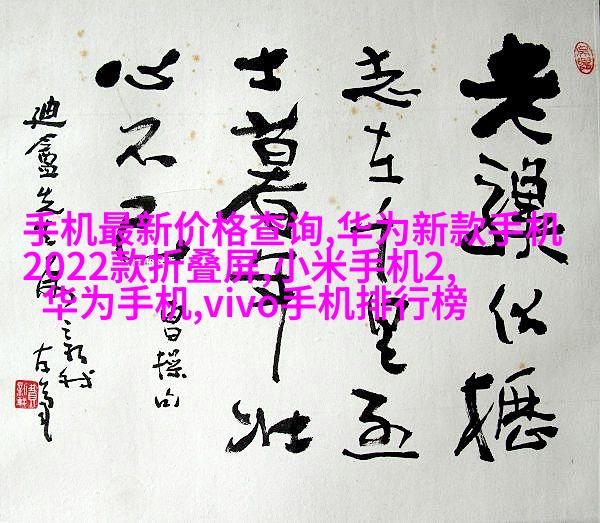 老骥伏枥
志在千里烈
士暮年壮
心不已
曹操句
手机最新价格查询,华为新款手机
2022款折叠屏,小米手机2,
华为手机,vivo手机排行榜